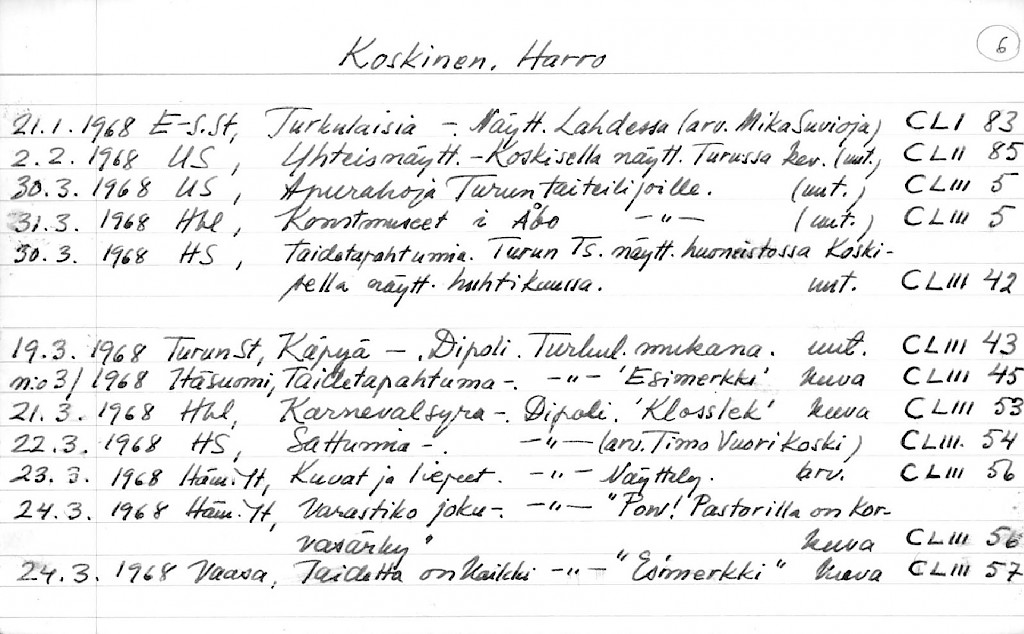 6
Koskinen, Harro
21.1.1968 E-S.St, Turkulaisia - . Näytt. Lahdessa (arv. Mika Suvioja) CLI 83
2.2.1968 US, Yhteisnäytt. - Koskisella näytt. Turussa kev. (uut.) CLII 85
30.3.1968 US, Apurahoja Turun taiteilijoille. (uut.) CLIII 5
31.3.1968 Hbl, Konstmuseet i Åbo -"- (uut.) CLIII 5
30.3.1968 HS, Taidetapahtumia. Turun Ts. näytt. huoneistossa Koski-
sella näytt. huhtikuussa. uut. CLIII 42
19.3.1968 TurunSt, Käpyä - . Dipoli. Turkul. mukana. uut. CLIII 43
n:o 3/1968 Häsuomi, Taidetapahtuma - . -"- 'Esimerkki' kuva CLIII 45
21.3.1968 Hbl, Karnevalsyra - . Dipoli. 'Klosslek' kuva CLIII 53
22.3.1968 HS, Sattumia - . -"- (arv. Timo Vuorikoski) CLIII. 54
23.3.1968 Häm.Yt, Kuvat ja -"- Näyttely. arv. CLIII 56
24.3.1968 Häm.Yt, Varastiko joku - . -"- "Pow! Pastorilla on kor-
vasärky" kuva CLIII 56
24.3.1968 Vaasa, Taidetta on kaikki -"- "Esimerkki" kuva CLIII 57